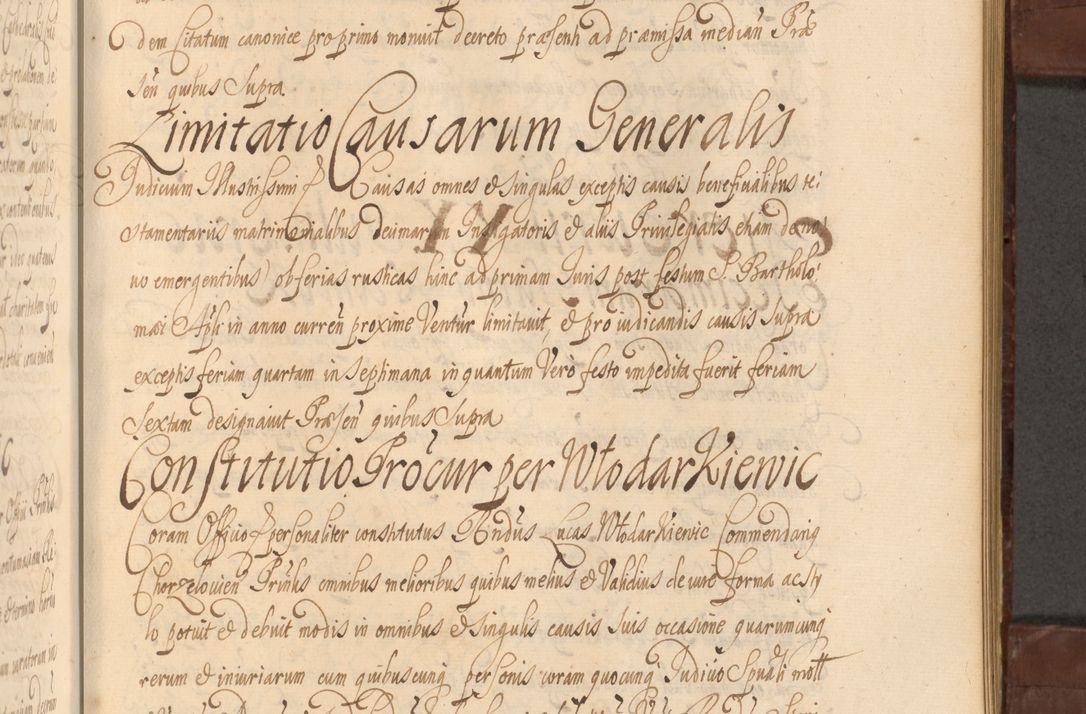 dem Citatum canonice pro primo monuit decreto præsenti ad præmissa median Præ
sen quibus Supra
Limitatio Causarum Generalis
Iudicium Illustrissimi & Causas omnes et singulas exceptis causis beneficialibus te:
stamentariis matrimonialibus decimarum Instigatoris et aliis Privilegiatis etiam de no
vo emergentibus ob ferias rusticas hinc ad primam Iuris post festum S. Bartholo
mæi Apli in anno curren proxime Ventur limitavit, et pro iudicandis causis Supra
exceptis feriam quartam in Septimana in quantum Vero festo impedita fuerit feriam
Sextam designavit Præsen quibus Supra
Constitutio Procur per Włodarkiewic
Coram Officio & personaliter constitutus Rndus Lucas Włodarkiewic Commendarig
Chorzelovien Prinlis omnibus melioribus quibus melius et Validius de iure forma ac sty
lo potuit et debuit modis in omnibus et singulis causis suis occasione quarumcunq
rerum et iniuriarum cum quibuscunq personis coram quocunq Iudicio Spuali mott